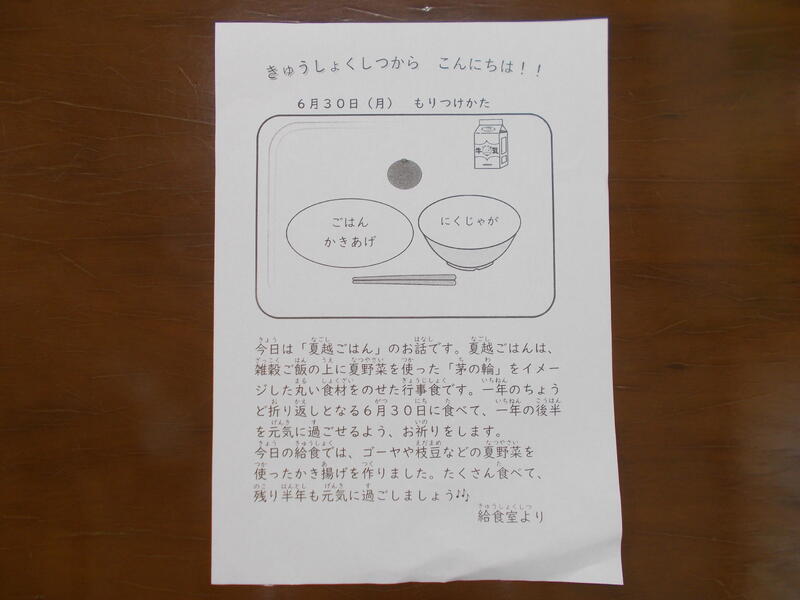 きゅうしょくしつから　こんにちは！！
６月３０日（月）　もりつけかた
牛乳
ごはん
かきあげ
にくじゃが
今日は「夏越ごはん」のお話です。夏越ごはんは、
雑穀ご飯の上に夏野菜を使った「茅の輪」をイメー
ジした丸い食材をのせた行事食です。一年のちょう
ど折り返しとなる６月３０日に食べて、一年の後半
を元気に過ごせるよう、お祈りをします。
今日の給食では、ゴーヤや枝豆などの夏野菜を
使ったかき揚げを作りました。たくさん食べて、
残り半年も元気に過ごしましょう♪♪
給食室より